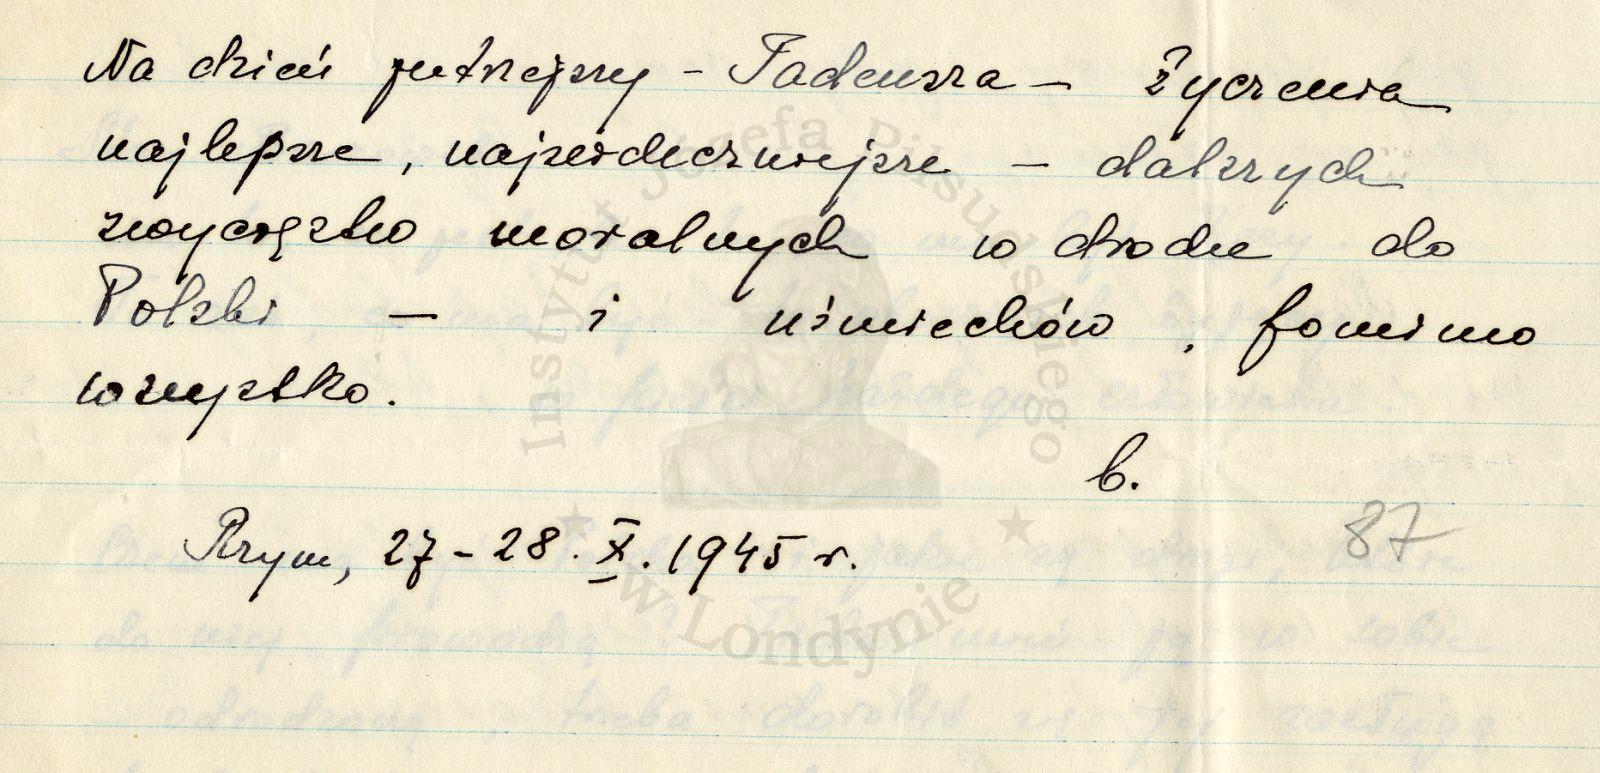 Na dzień jutrzejszy – Tadeusza – życzenia
najlepsze, najserdeczniejsze – dalszych
zwycięstw moralnych w drodze do
Polski – i uśmiechów, pomimo
wszystko.
b.
87
Rzym, 27–28. X. 1945 r.
Instytut Józefa Piłsudskiego
w Londynie